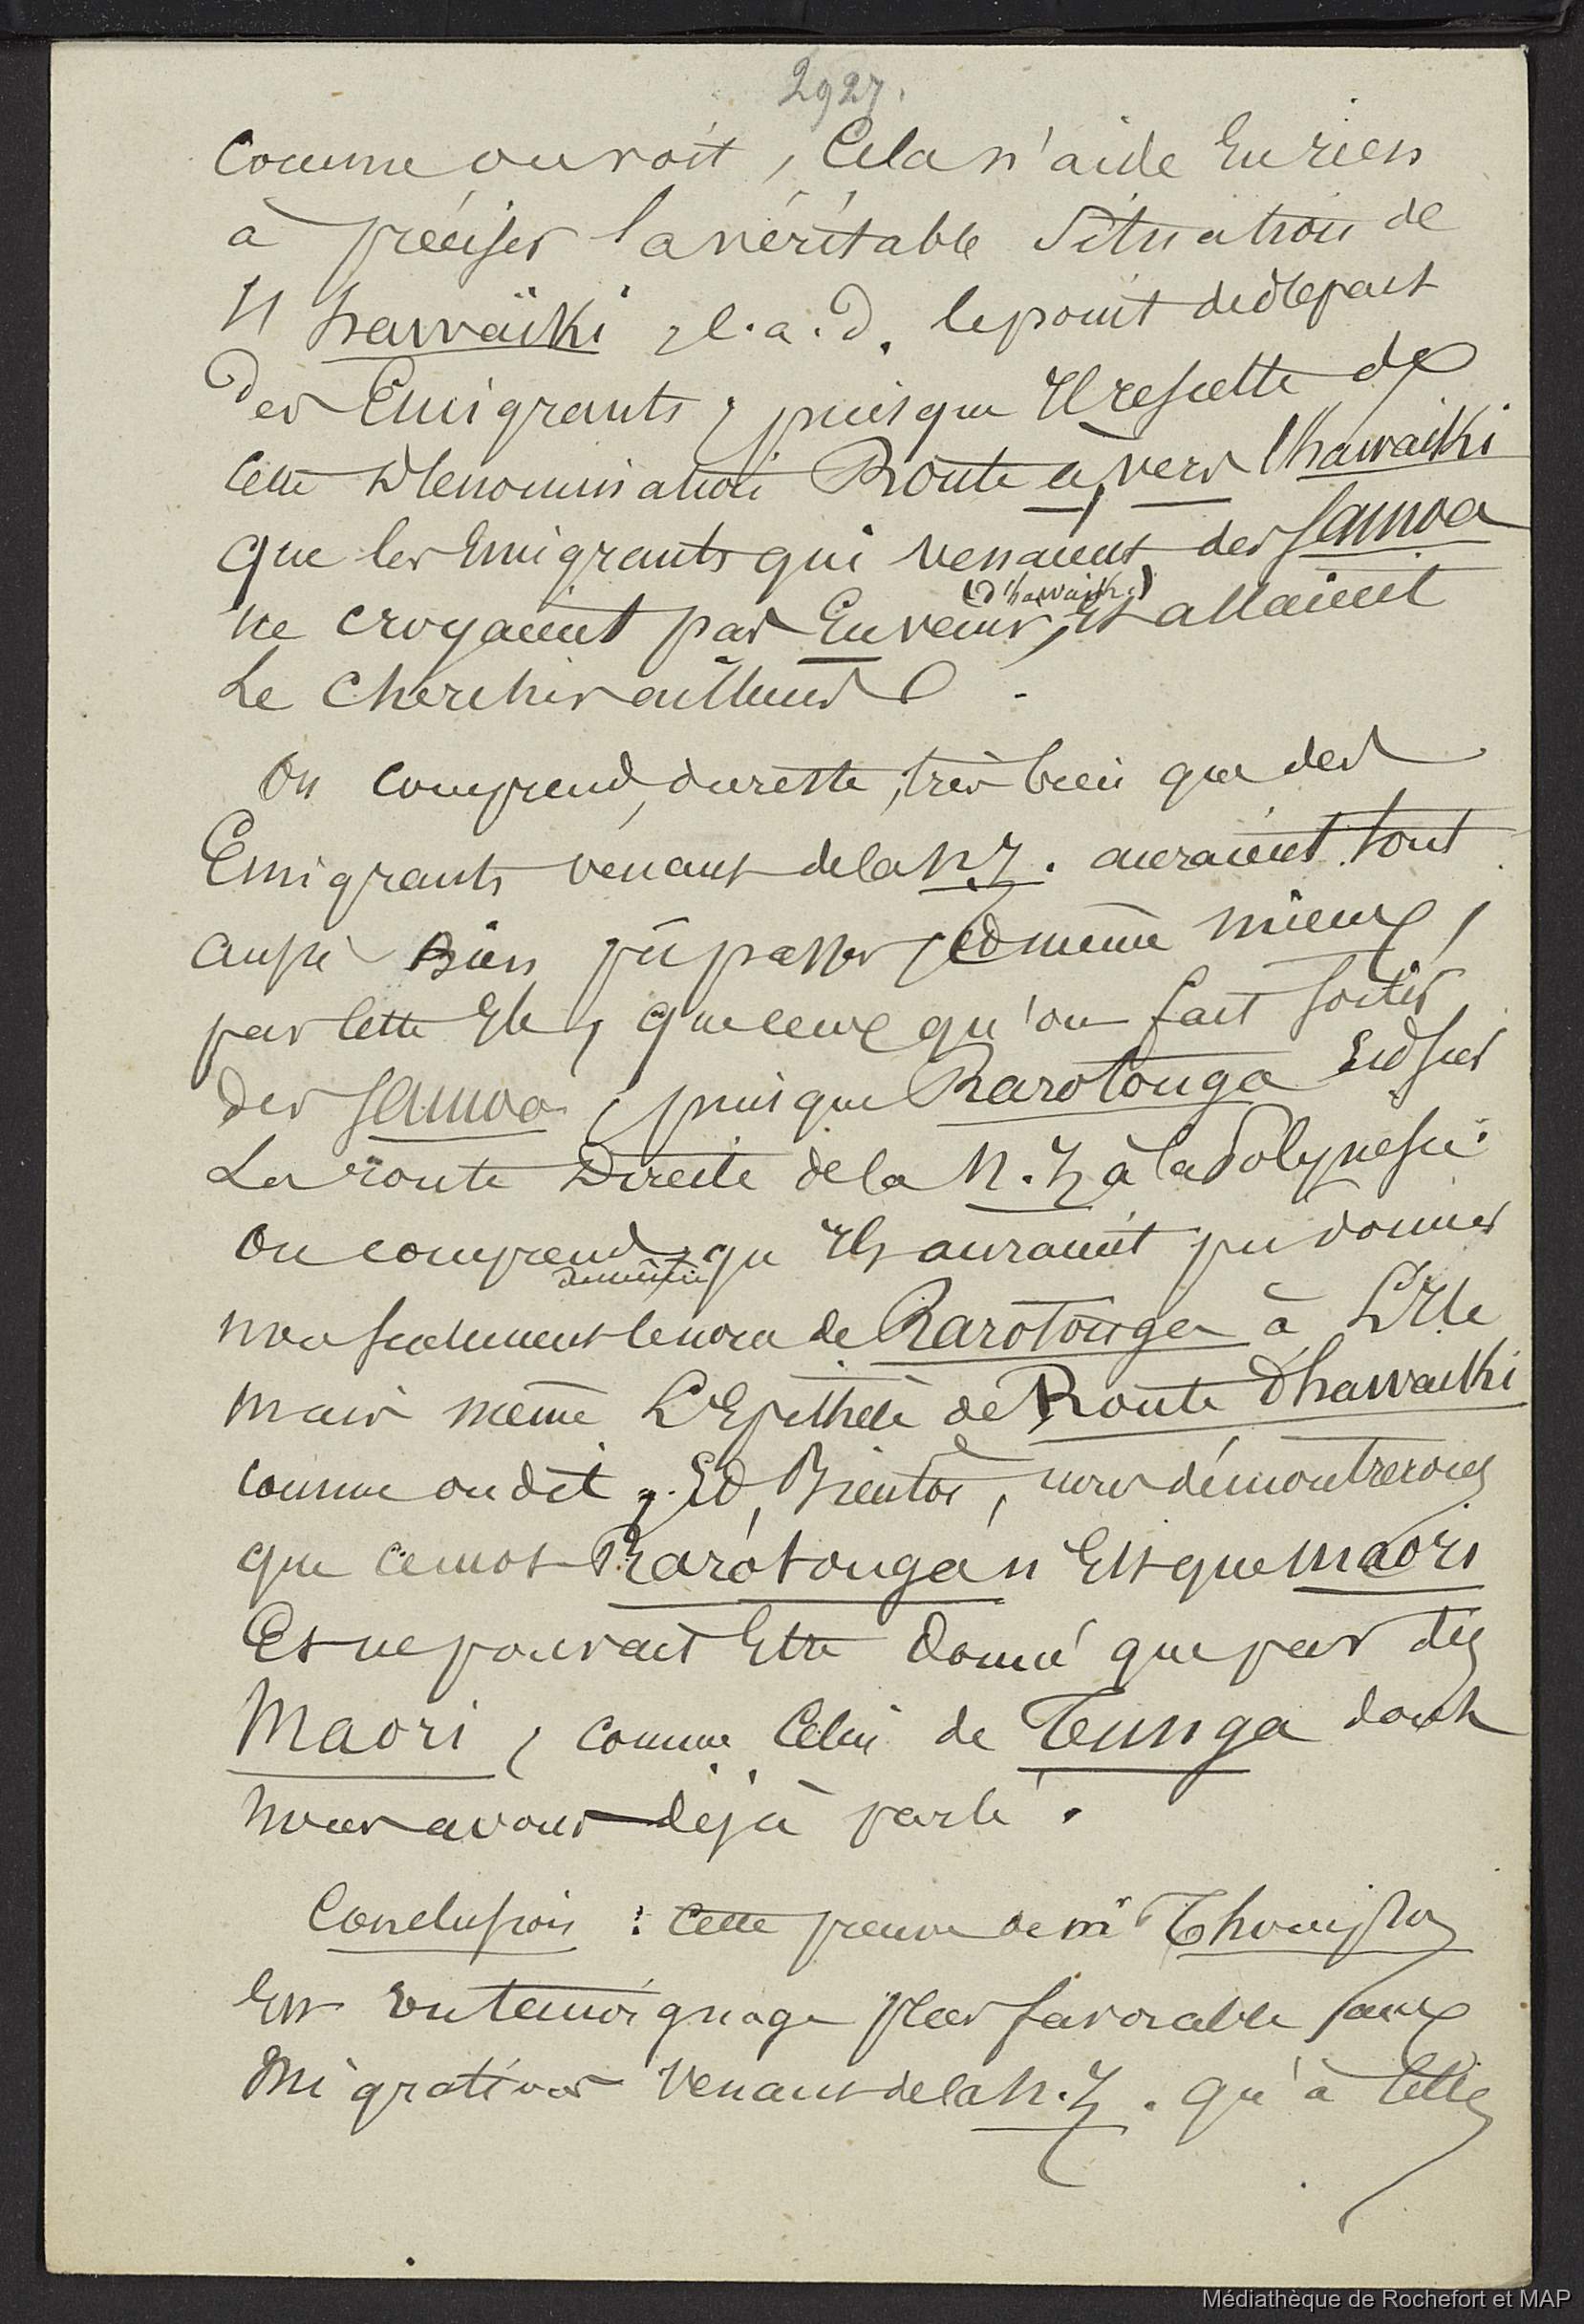 2927.
Comme on voit, Cela n'aide En rien
à préciser la véritable Situation de
l'hawaïki, c.a.d. le point de départ
des Emigrants, puisque Il résulte de
cette Dénomination Route à, vers l'hawaiki
que les Emigrants qui venaient des Samoa
(d'hawaiki)
ne croyaient pas En venir, Et allaient
Le chercher ailleurs.
On comprend, du reste, très bien que des
Emigrants venant de la N.Z. auraient tout
aussi Bien pû passer, et même mieux,
par cette Ile, que ceux qu'on fait sortir
des Samoa, puisque Rarotonga Est sur
La route Directe de la N.Z à la Polynesie.
On comprend, qu'Ils auraient pu donner
non seulement le nom de Rarotonga à L'Ile
mais même L'Epithète de Route d'hawaiki
comme on dit. Et, Bientôt, nous démontrerons
que ce mot Rarotonga n'Est que maori
Et ne pouvait Etre donné que par des
Maori, comme Celui de Tunga dont
nous avons déjà parlé.
Conclusion : Cette preuve de mr
Est un temoignage plus favorable aux
Migrations Venant de la N.Z. qu'à celles
Médiathèque de Rochefort et MAP